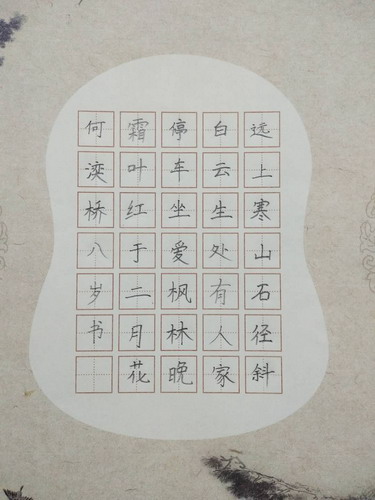 远上寒山石径斜
白云生处有人家
停车坐爱枫林晚
霜叶红于二月花
何湙桥八岁书